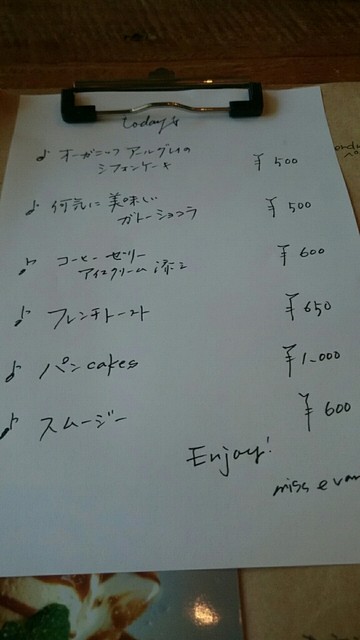 today's
♪ オーガニック アールグレイの
シフォンケーキ ¥500
♪ 何気に 美味しい
ガトーショコラ ¥500
♪ コーヒーゼリー
アイスクリーム 添え ¥600
♪ フレンチトースト ¥650
♪ パン cakes ¥1,000
♪ スムージー ¥600
Enjoy!
miss evan